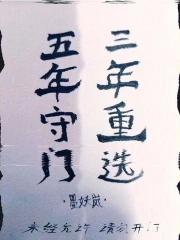 三年重选
五年守门
·墨妖贰·
未经允许 请勿开门